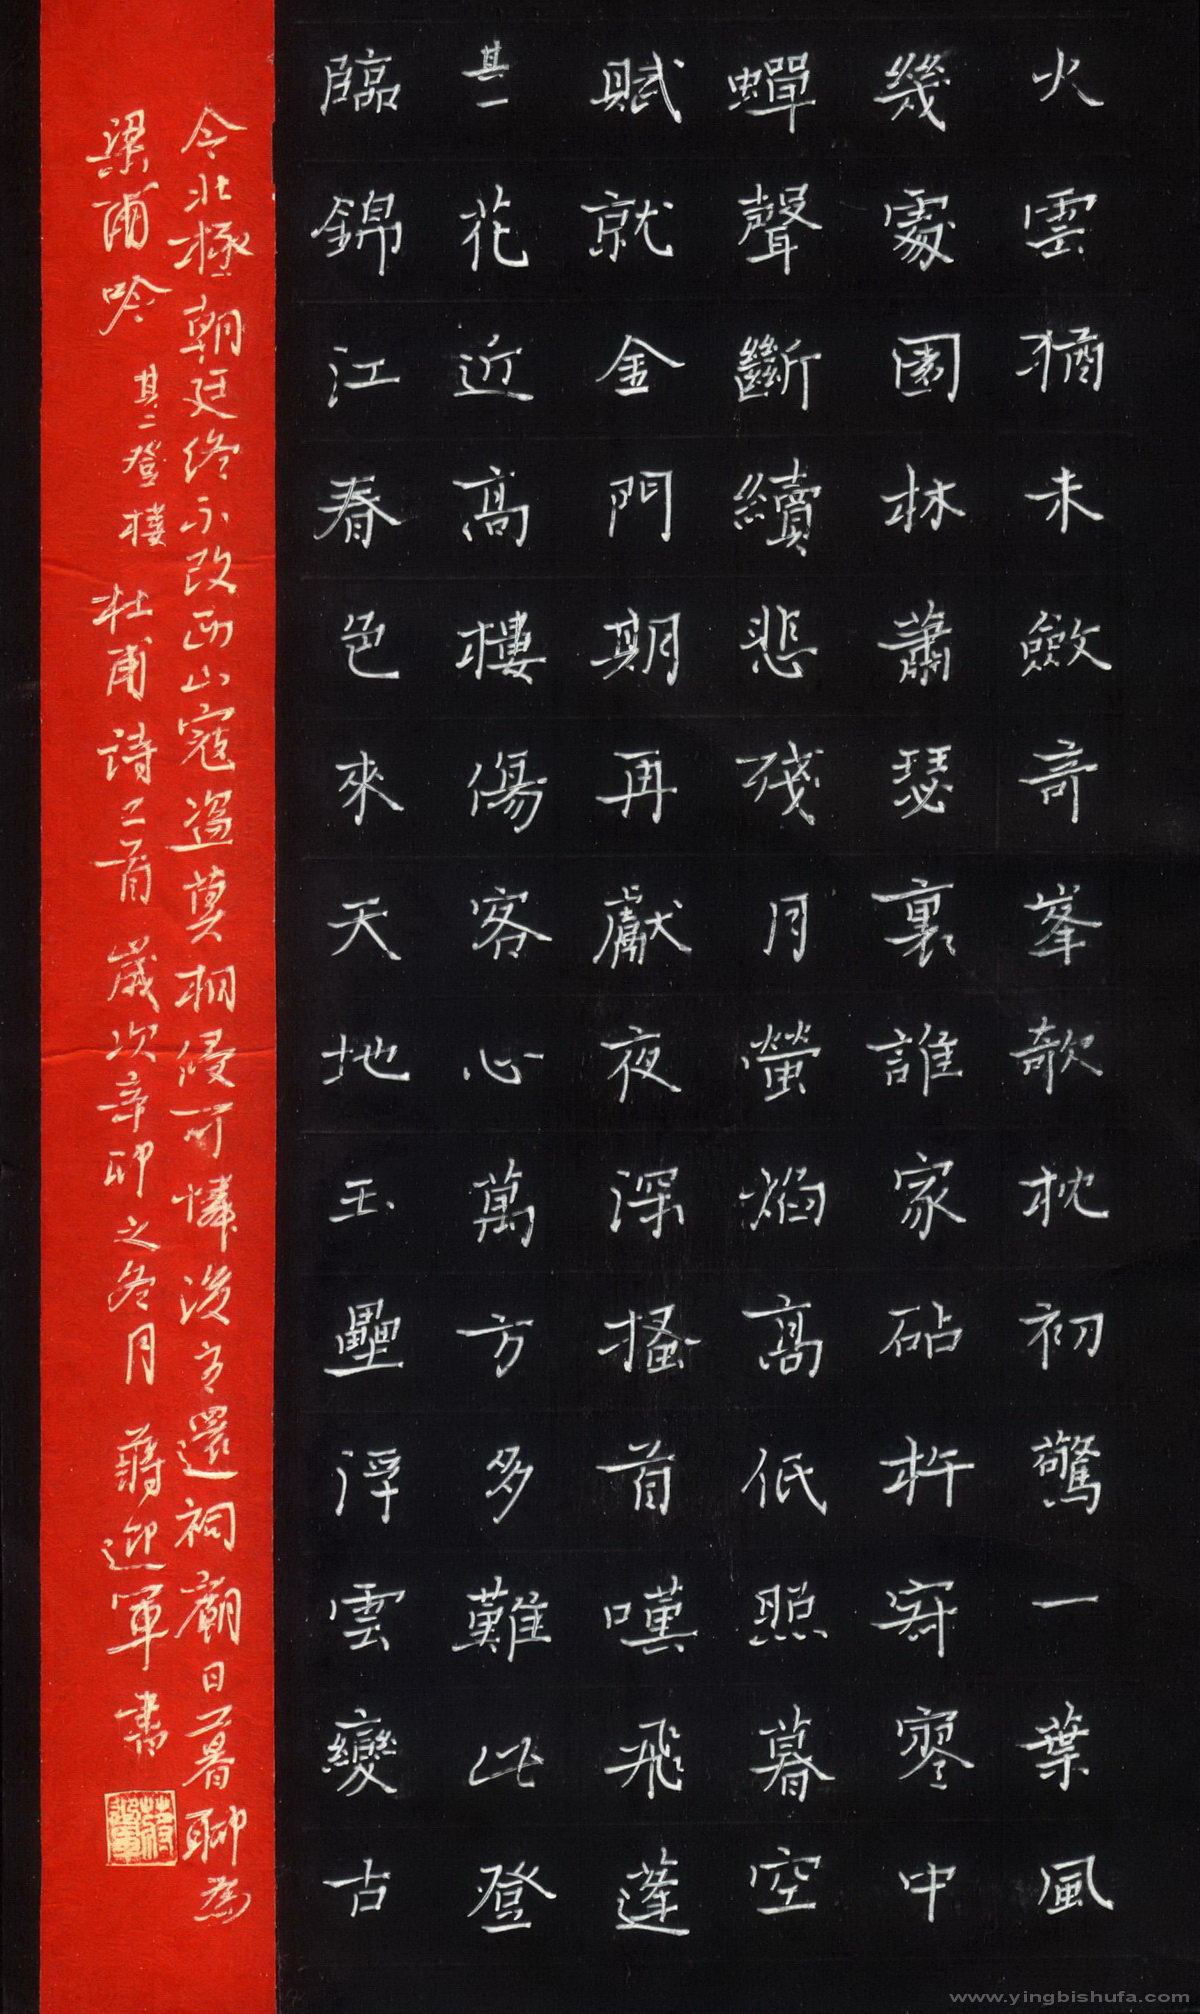 火雲猶未斂奇峯欹枕初驚一葉風
幾處園林蕭瑟裏誰家砧杵寂寥中
蟬聲斷續悲殘月螢焰高低照暮空
賦就金門期再獻夜深搔首嘆飛蓬
其一花近高樓傷客心萬方多難此登
臨錦江春色來天地玉壘浮雲變古
今北極朝廷終不改西山寇盜莫相侵可憐後主還祠廟日暮聊為
梁甫吟 其二登樓 杜甫詩二首 歲次辛卯之冬月 蔣迎軍書
www.yingbishufa.com